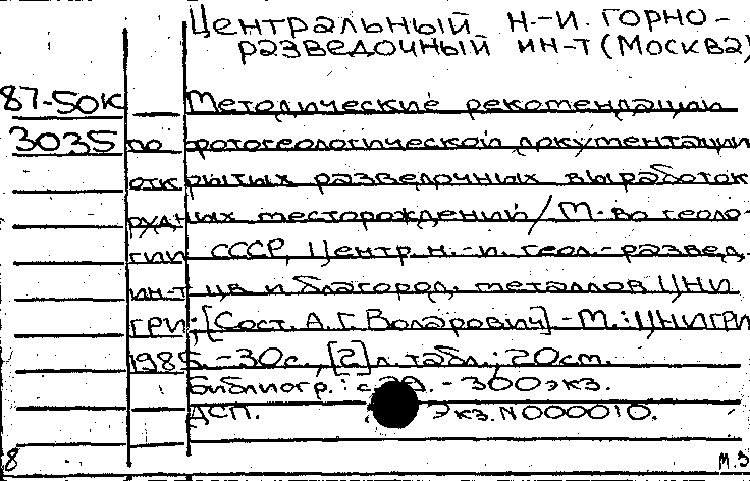 Центральный н.-и. горно-
разведочный ин-т (Москва)
87-50к Методические рекомендации
3035 по фотогеологической документации
открытых разведочных выработок
рудных месторождений / М-во геоло-
гии СССР, Центр. н.-и. геол.-развед.
ин-т цв. и благород. металлов ЦНИ
ГРИ; [Сост. А. Г. Воларович] - М. : ЦНИГРИ
1985. - 30 с., [2] л. табл.; 20 см.
Библиогр.: с. - 300 экз.
ДСП. Экз. N 000010.
8 М.З